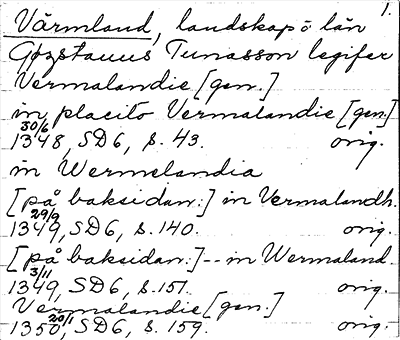 1.
Värmland, landskap o län
Gøzstauus Tunasson legifer
Vermalandie [gen.]
in placito Vermalandie [gen.]
30/6
1348, SD6, s. 43. orig.
in Wermelandia
[på baksidan:] in Vermalandh.
29/9
1349, SD6, s. 140. orig.
[på baksidan:] -- in Wermaland.
3/11
1349, SD6, s. 151. orig.
Vermalandie [gen.]
20/1
1350, SD6, s. 159. orig.